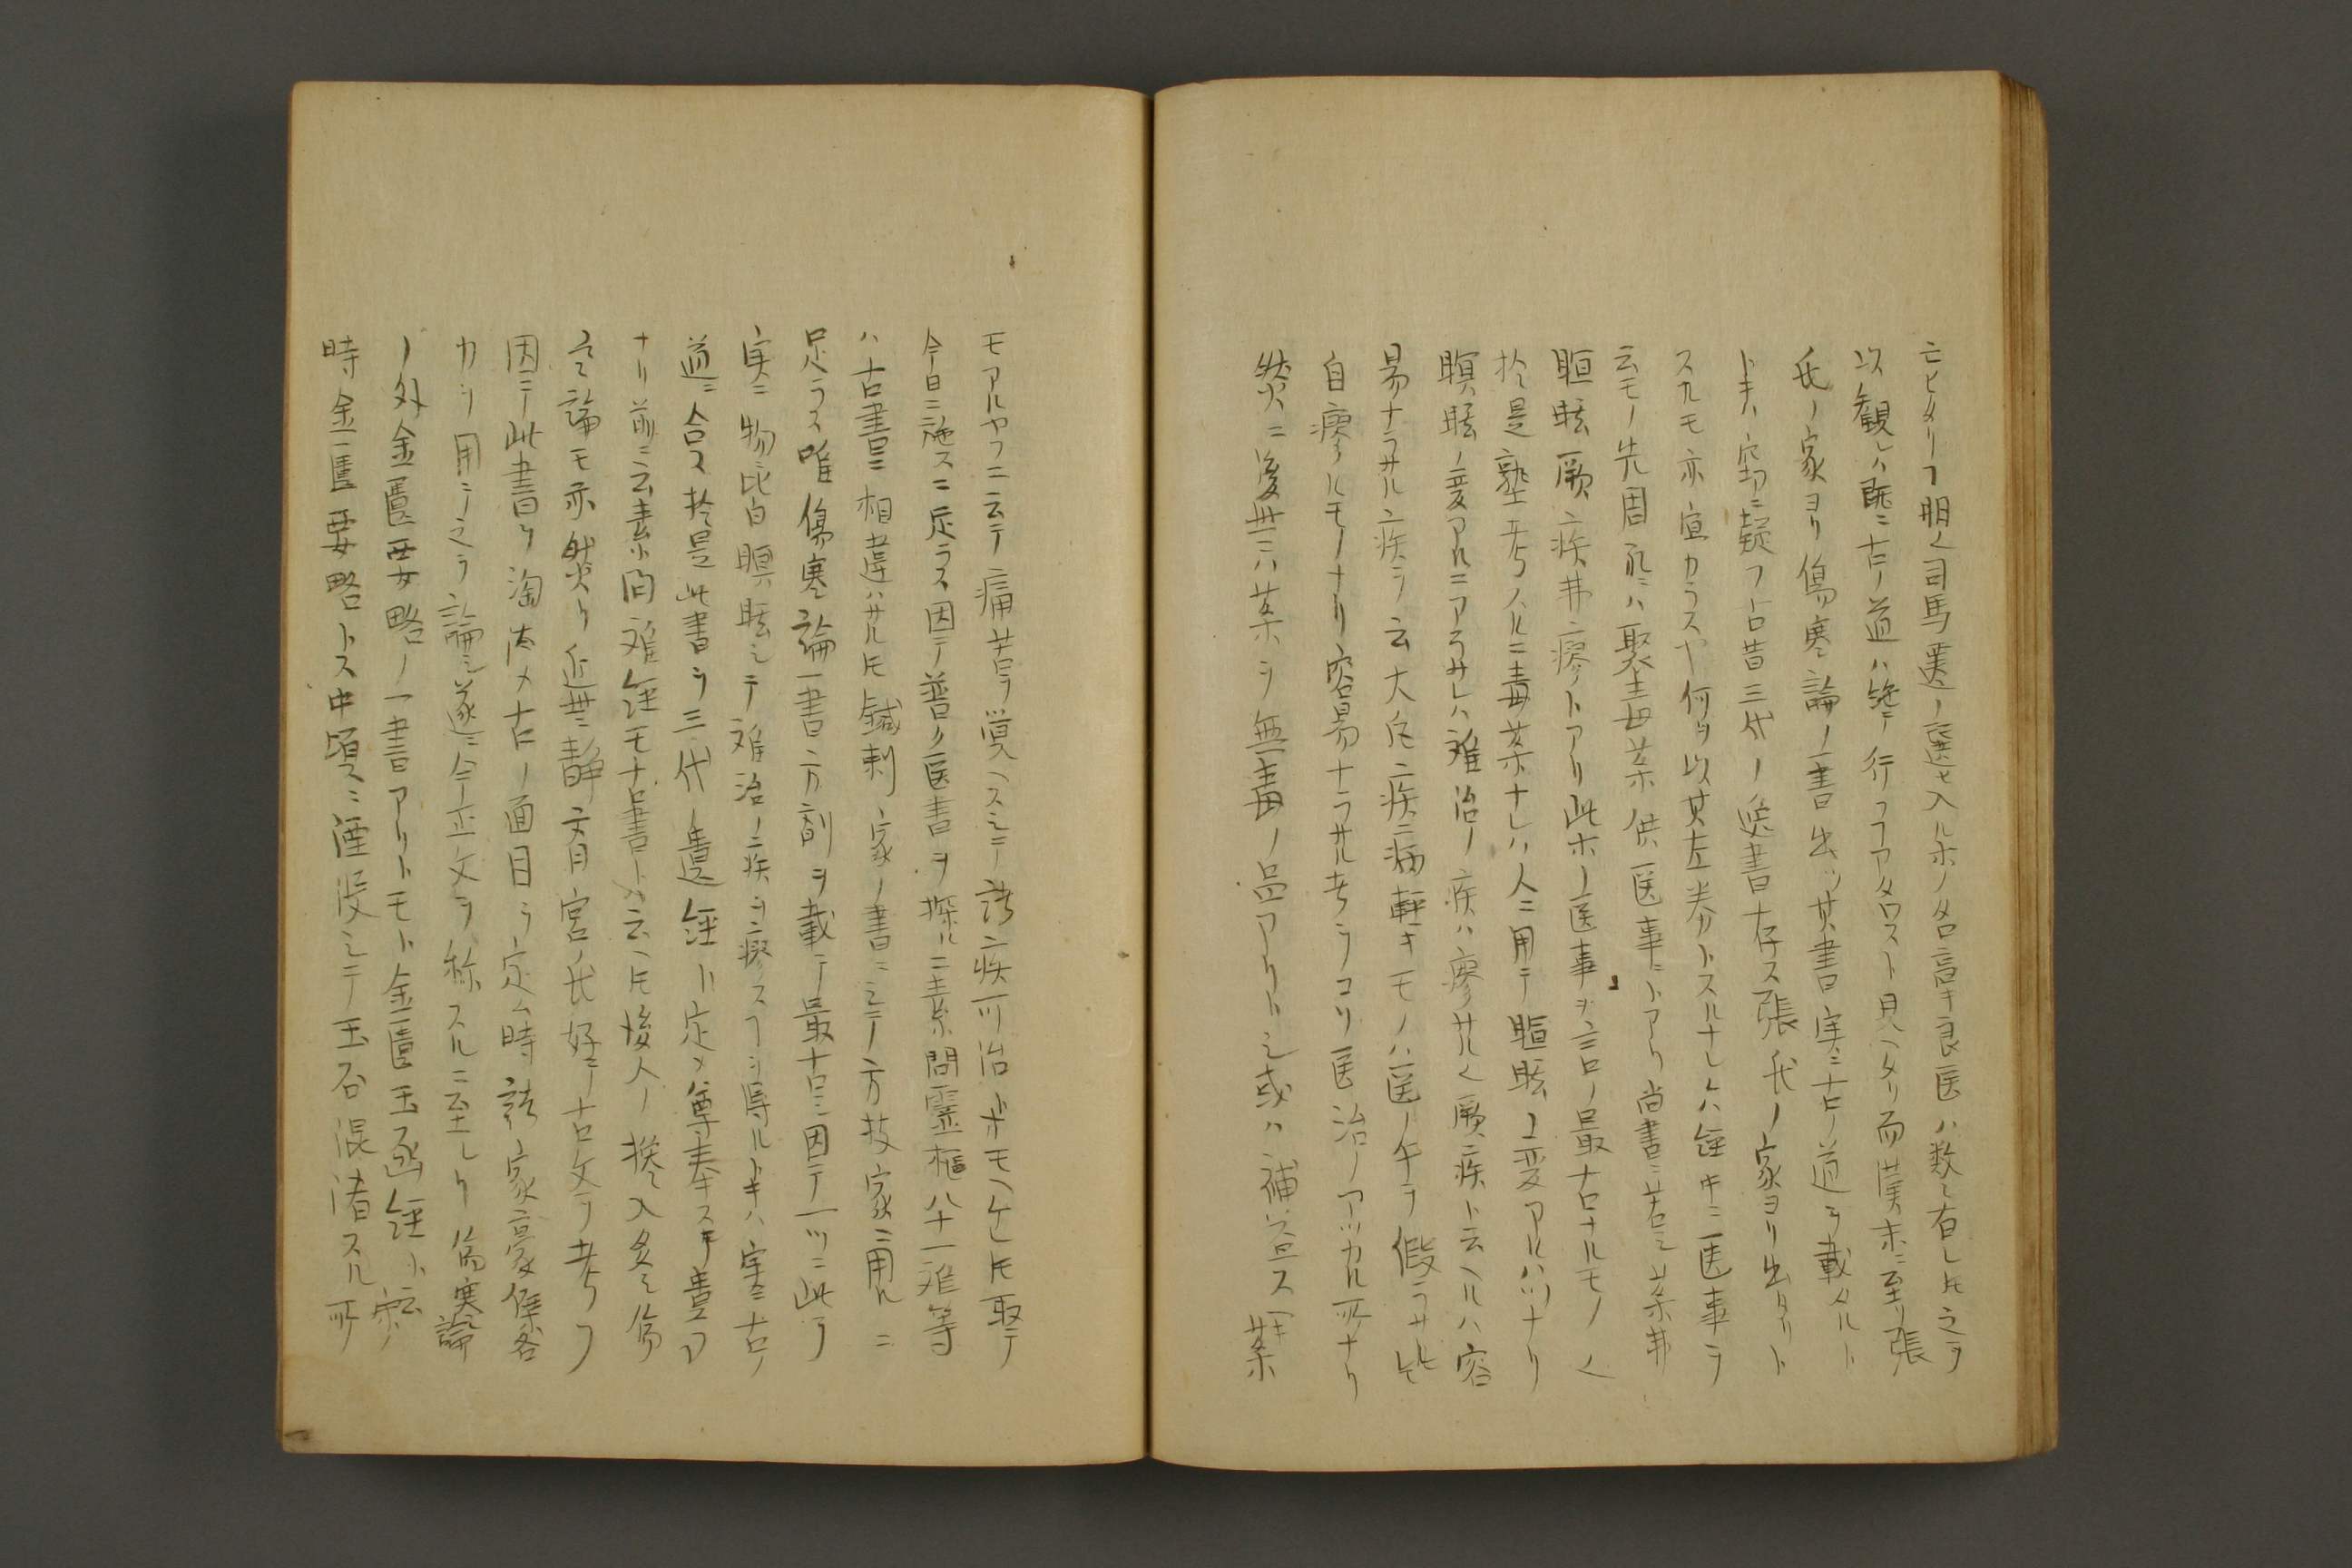 亡ヒタリフ明く司馬遷ノ選ヒ入ルホノ名高キ良医ハ数々有レ𪜈之ヲ
以観レハ既ニ古ノ道ハ終ニ行フコアタワスト見ヘタリ而漢末ニ至リ張
氏ノ家ヨリ傷寒論ノ一書出ツ其書実ニ古ノ道ヲ載タルト
トキハ窃ニ疑フ古昔三代ノ逸書存ス張氏ノ家ヨリ出タリト
スルモ亦宜カラスヤ何ヲ以其左券トスルナレハ経中ニ医事ヲ
云モノ先周礼ニハ聚毒薬供医事ニトアリ尚書ニ若シ薬弗
瞑眩厥疾弗瘳トアリ此ホノ医事ヲ言ノ最古ナルモノく
於是塾考ノルニ毒薬ナレハ人ニ用テ瞑眩ノ変アルハツナリ
瞑眩ノ変アルニアラサレハ難治ノ疾ハ瘳サルく厥疾ト云ヘルハ容
易ナラサル疾ヲ云大凡疾病軽キモノハ医ノ手ヲ假ラサレ𪜈
自瘳ルモノナリ容易ナラサル者ヲコソ医治ノアツカル所ナリ
然ニ後世ハ薬ヲ無毒ノ品アリトシ或ハ補益スヘキ薬
モアルヤフニ云テ痛苦ヲ覚ヘスシテ諸疾可治ホモヘケレ𪜈取テ
今日ニ施スニ足ラス因テ普ク医書ヲ探ルニ素問霊枢八十一難等
ハ古書ニ相違ハサル𪜈鍼刺ノ家ノ書ニシテ方技家ニ用ルニ
足ラス唯傷寒論一書方剤ヲ載テ最古シ因テ一ツニ此ヲ
実ニ物皆瞑眩シテ難治ノ疾ヲ瘳スフヲ得ルトキハ実ニ古ノ
道ニ合ス於是此書ヲ三代ノ遺経ト定メ尊奉スキ書フ
ナリ前ニ云素問難経モ古書トハ云ヘ𪜈後人ノ攙入多シ傷
寒論モ亦然り近世静斉宮氏好テ古文ヲ考フ
因テ此書ヲ淘汰メ古ノ面目ヲ定ム時諸家豪傑各
カヲ用テ之ヲ論シ遂ニ今正文ヲ称スルニ至レリ傷寒論
ノ外金匱要略ノ一書アリトモト金匱玉函経ト云宋ノ
時金匱要略トス中頃ニ湮没シテ玉石混淆スル所